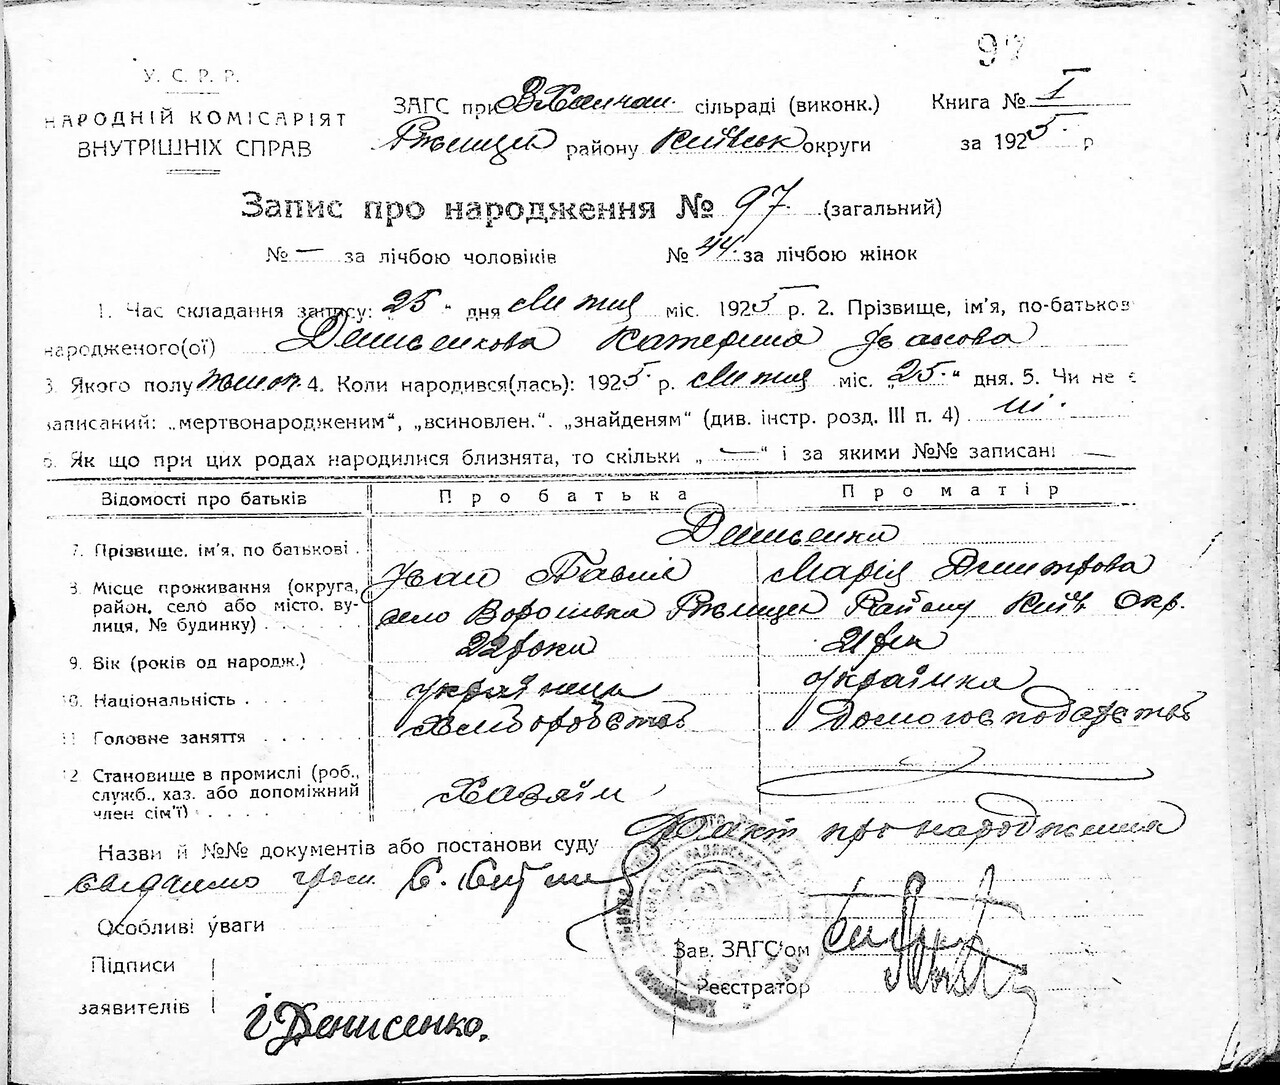 97
У. С. Р. Р.
НАРОДНІЙ КОМІСАРІЯТ
ВНУТРІШНІХ СПРАВ
ЗАГС при В Халчан. сільраді (виконк.) Книга № I
Ржищев району Київськ округи за 1925 р
Запис про народження № 97. (загальний)
№ — за лічбою чоловіків № 44 за лічбою жінок
1. Час складання запису: „25“ дня міс. 1925 р. 2. Прізвище, ім'я, по-батьков
народженого(ої) Денисенкова Катерина Іванова
3. Якого полу жіноч. 4. Коли народився(лась): 1925 р. міс. „25.“ дня. 5. Чи не є
записаний: „мертвонародженим“, „всиновлен.“. „знайденям“ (див. інстр. розд. III п. 4) ні.
6. Як що при цих родах народилися близнята, то скільки „—“ і за якими №№ записані —
Відомості про батьків Про батька Про матір
7. Прізвище, ім'я, по батькові . Денисенки
Іван Павлів Марія Дмитрова
8. Місце проживання (округа, район, село або місто, вулиця, № будинку) . . . . село Ржищев Району Київ Окр.
9. Вік (років од народж.) 22 роки 21 рік
10. Національність . . . . українець українка
11 Головне заняття . . . . . Хліборобство Домогосподарство
12 Становище в промислі (роб., служб., хаз. або допоміжний член сім'ї) . . . . Хазяїн
Назви й №№ документів або постанови суду Факт про народження
свідчимо гром.
Особливі уваги
Зав. ЗАГС'ом
Підписи
заявителів
Реєстратор
І Денисенко.